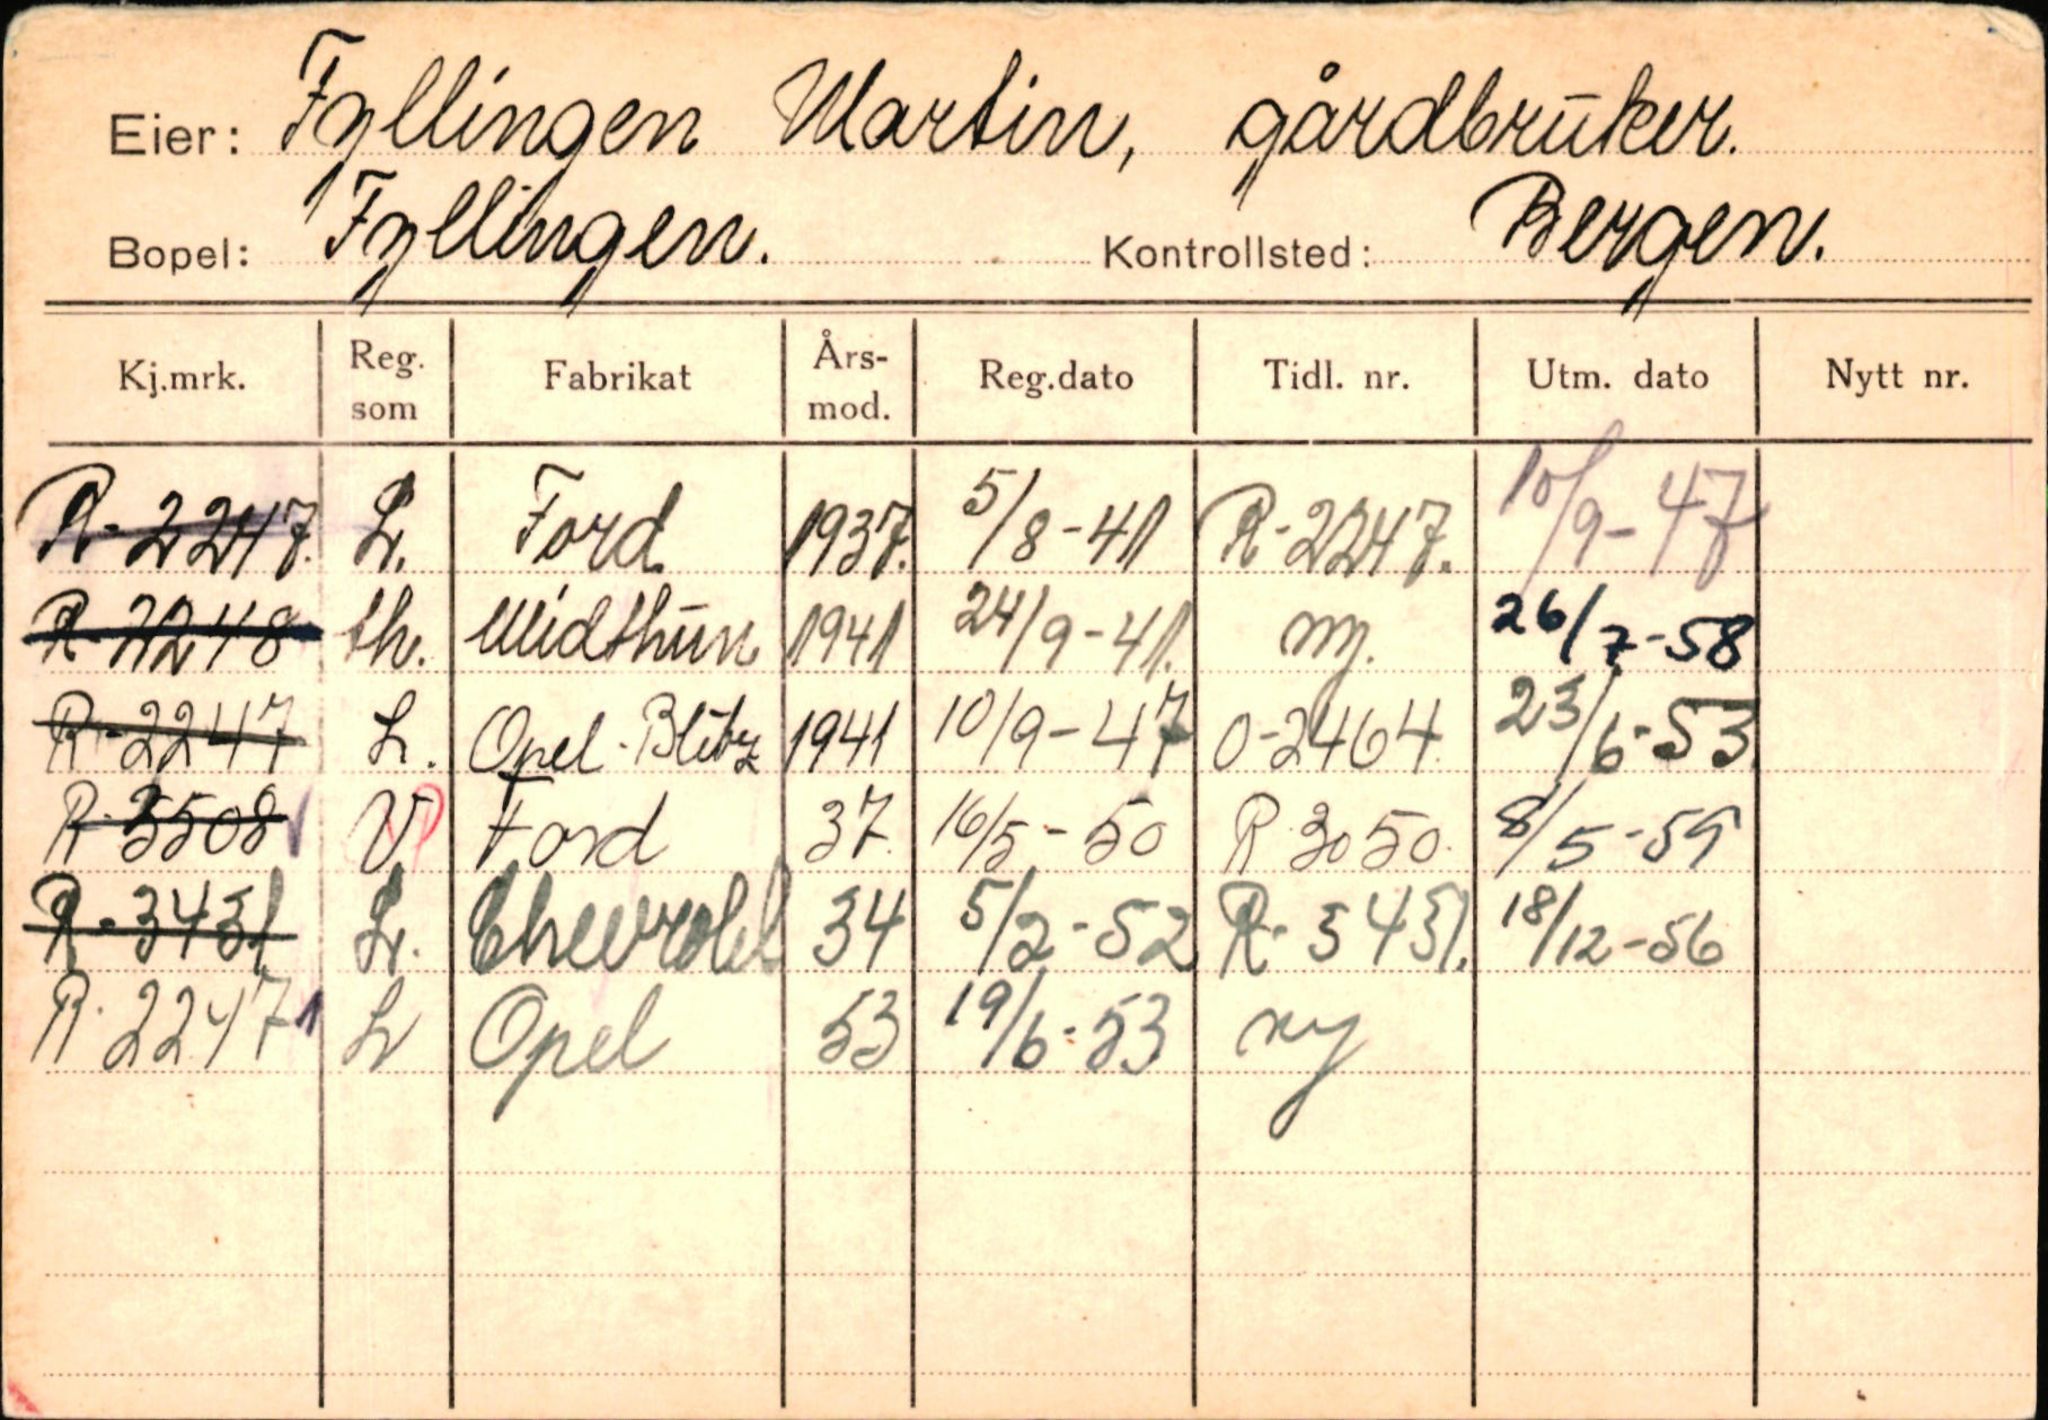 Eier: Fyllingen Martin, gårdbruker.
Bopel: Fyllingen. Kontrollsted: Bergen.
Kj.mrk. Reg. som Fabrikat Års-mod. Reg.dato Tidl. nr. Utm. dato Nytt nr.
R-2247. L. Ford 1937. 5/8-41 R-2247. 10/9-47
R-2248 th. Midthun 1941 24/9-41. ny. 26/7-58
R-2247 L. Opel-Blitz 1941 10/9-47 O-2464. 23/6-53.
R-5508 V Ford 37. 16/5-50 R 3050. 8/5-59
R-3431 L. Chevrolet 34 5/2-52 R-3431. 18/12-56
R-2247 L Opel 53 19/6-53 ny